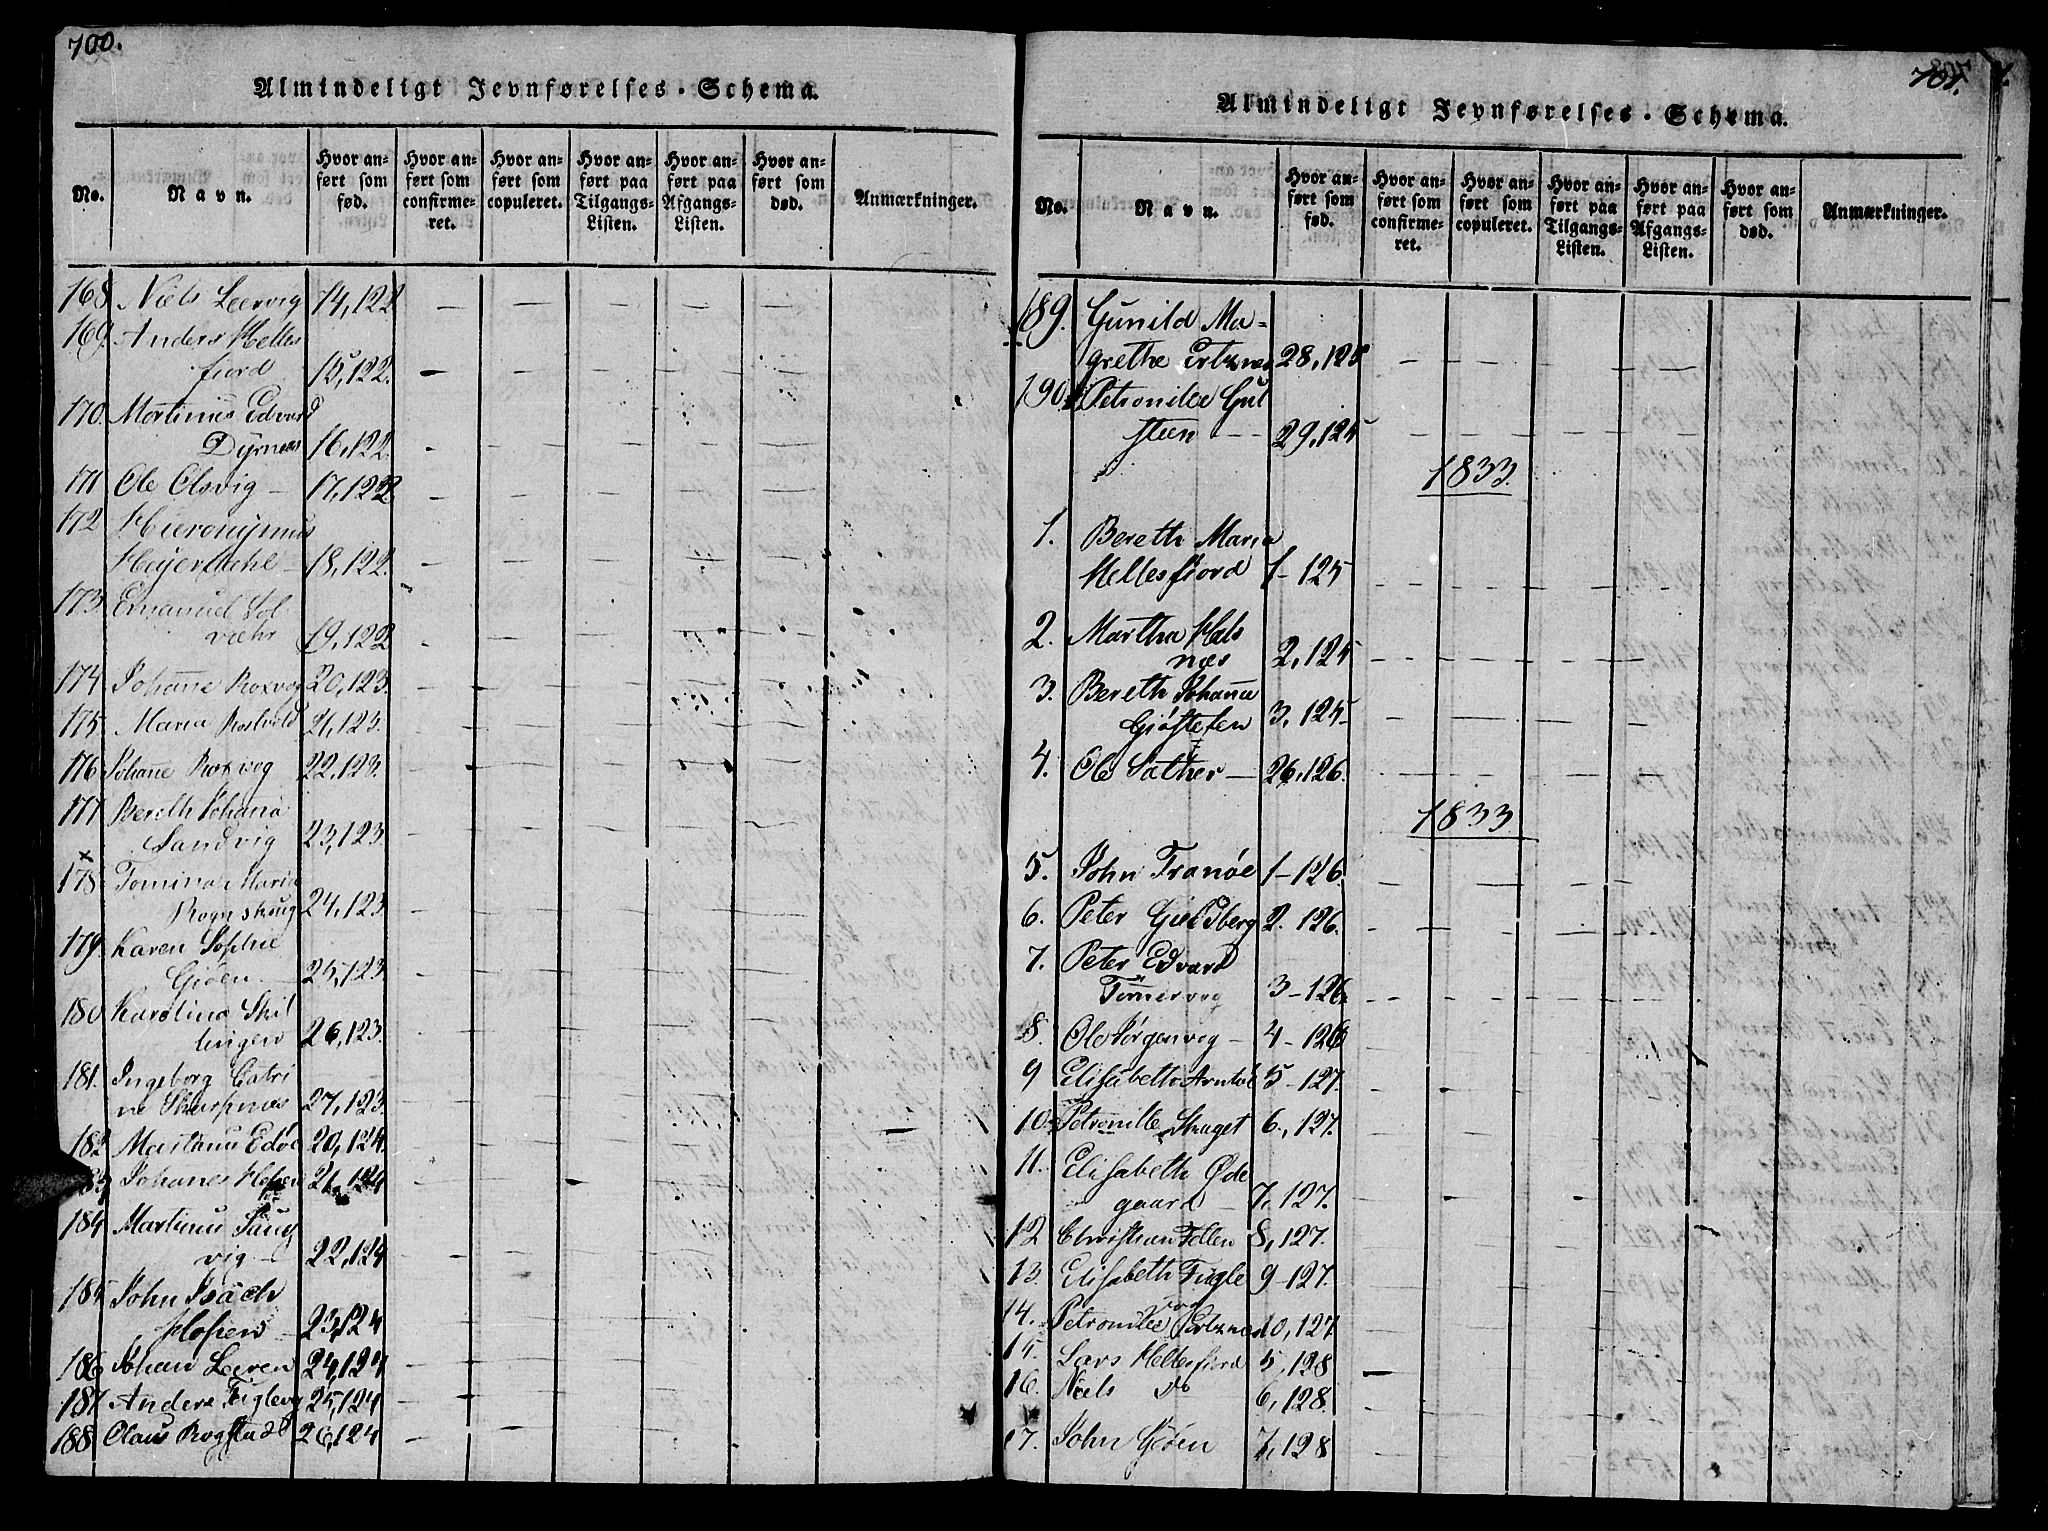 700.
Almindeligt Jevnførelses-Schema.
No.
Navn.
Hvor anført som fød.
Hvor anført som confirmeret.
Hvor anført som copuleret.
Hvor anført paa Tilgangs-Listen.
Hvor anført paa Afgangs-Listen.
Hvor anført som død.
Anmærkninger.
168 Niels Leervig 14,122
169. Anders Helles
fiord 15,122.
170. Martinus Edvard
Dyrnes 16,122.
171 Ole Olsvig — 17,122
172 Hieronymus
Heyerdahl — 18,122.
173. Emanuel Sol
væhr 19,122
174 Johanne Roxvog 20,123.
175. Maria 21,123.
176 Johanne Roxvog 22,123.
177 Bereth Johana
Sandvig 23,123.
178 Tomina Maria
Rognskaug 24,123.
179. Karen Sophie
Giøen — 25,123
180 Karolina Skil
lingen 26,123.
181. Ingeborg Catri
ne Skarpnes 27,123.
182 Marthnus Edøe 20,124.
183 Johanes Hopen 21,124
184 Martinus
vig — 22,124
185 John Isach
Hopen 23,124
186 Johan Leeren 24,124
187 Anders Fuglevog 25,124
188 Claus Rogstad 26,124
701.
Almindeligt Jevnførelses-Schema.
No.
Navn.
Hvor anført som fød.
Hvor anført som confirmeret.
Hvor anført som copuleret.
Hvor anført paa Tilgangs-Listen.
Hvor anført paa Afgangs-Listen.
Hvor anført som død.
Anmærkninger.
189. Gunild Ma-
grethe Ertznes 28,125
190. Petronilee Gul
steen — 29,125
1833.
1. Bereth Maria
Hellesfiord 1–125
2. Martha Hals
næs 2,125
3. Bereth Johanna
Giøstelen 3,125
4. Ole Sather — 26,126.
1833
5. John Tranøe 1–126.
6. Peter Gieldberg 2.126.
7. Peter Edvard
Tømmervog 3–126.
8. Ole Jørgenvog — 4–126
9 Elisabeth 5–127.
10. Petronille Skaget 6,127.
11. Elisabeth Øde
gaard — 7,127.
12 Christian Follen 8,127.
13. Elisabeth Fugle
vog 9–127.
14. Petronilee Ertznes 10,127
15. Lars Hellesfiord 5,128
16. Niels do 6,128.
17. John Giøen 7,128